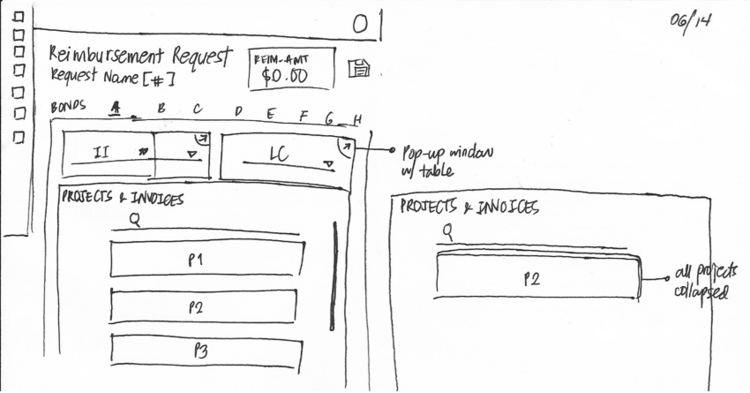 06/14
Reimbursement Request
Request Name [#]
REIM-AMT
$0.00
BONDS A B C D E F G H
II
LC
Pop-up window
w/ table
PROJECTS & INVOICES
P1
P2
P3
PROJECTS & INVOICES
P2
all projects
collapsed